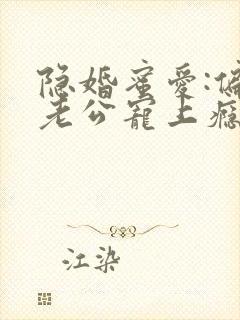 隐婚蜜爱:偏
老公宠上瘾
江染